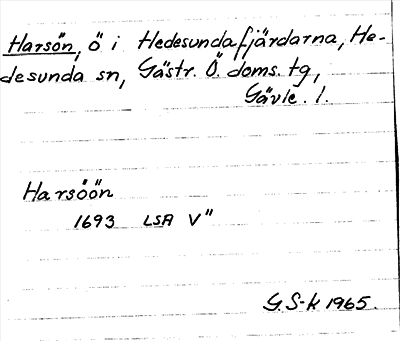 Harsön, ö i Hedesundafjärdarna, He-
desunda sn, Gästr. Ö. doms. tg,
Gävle. l.
Harsöön
1693 LSA V"
G. S-k 1965.